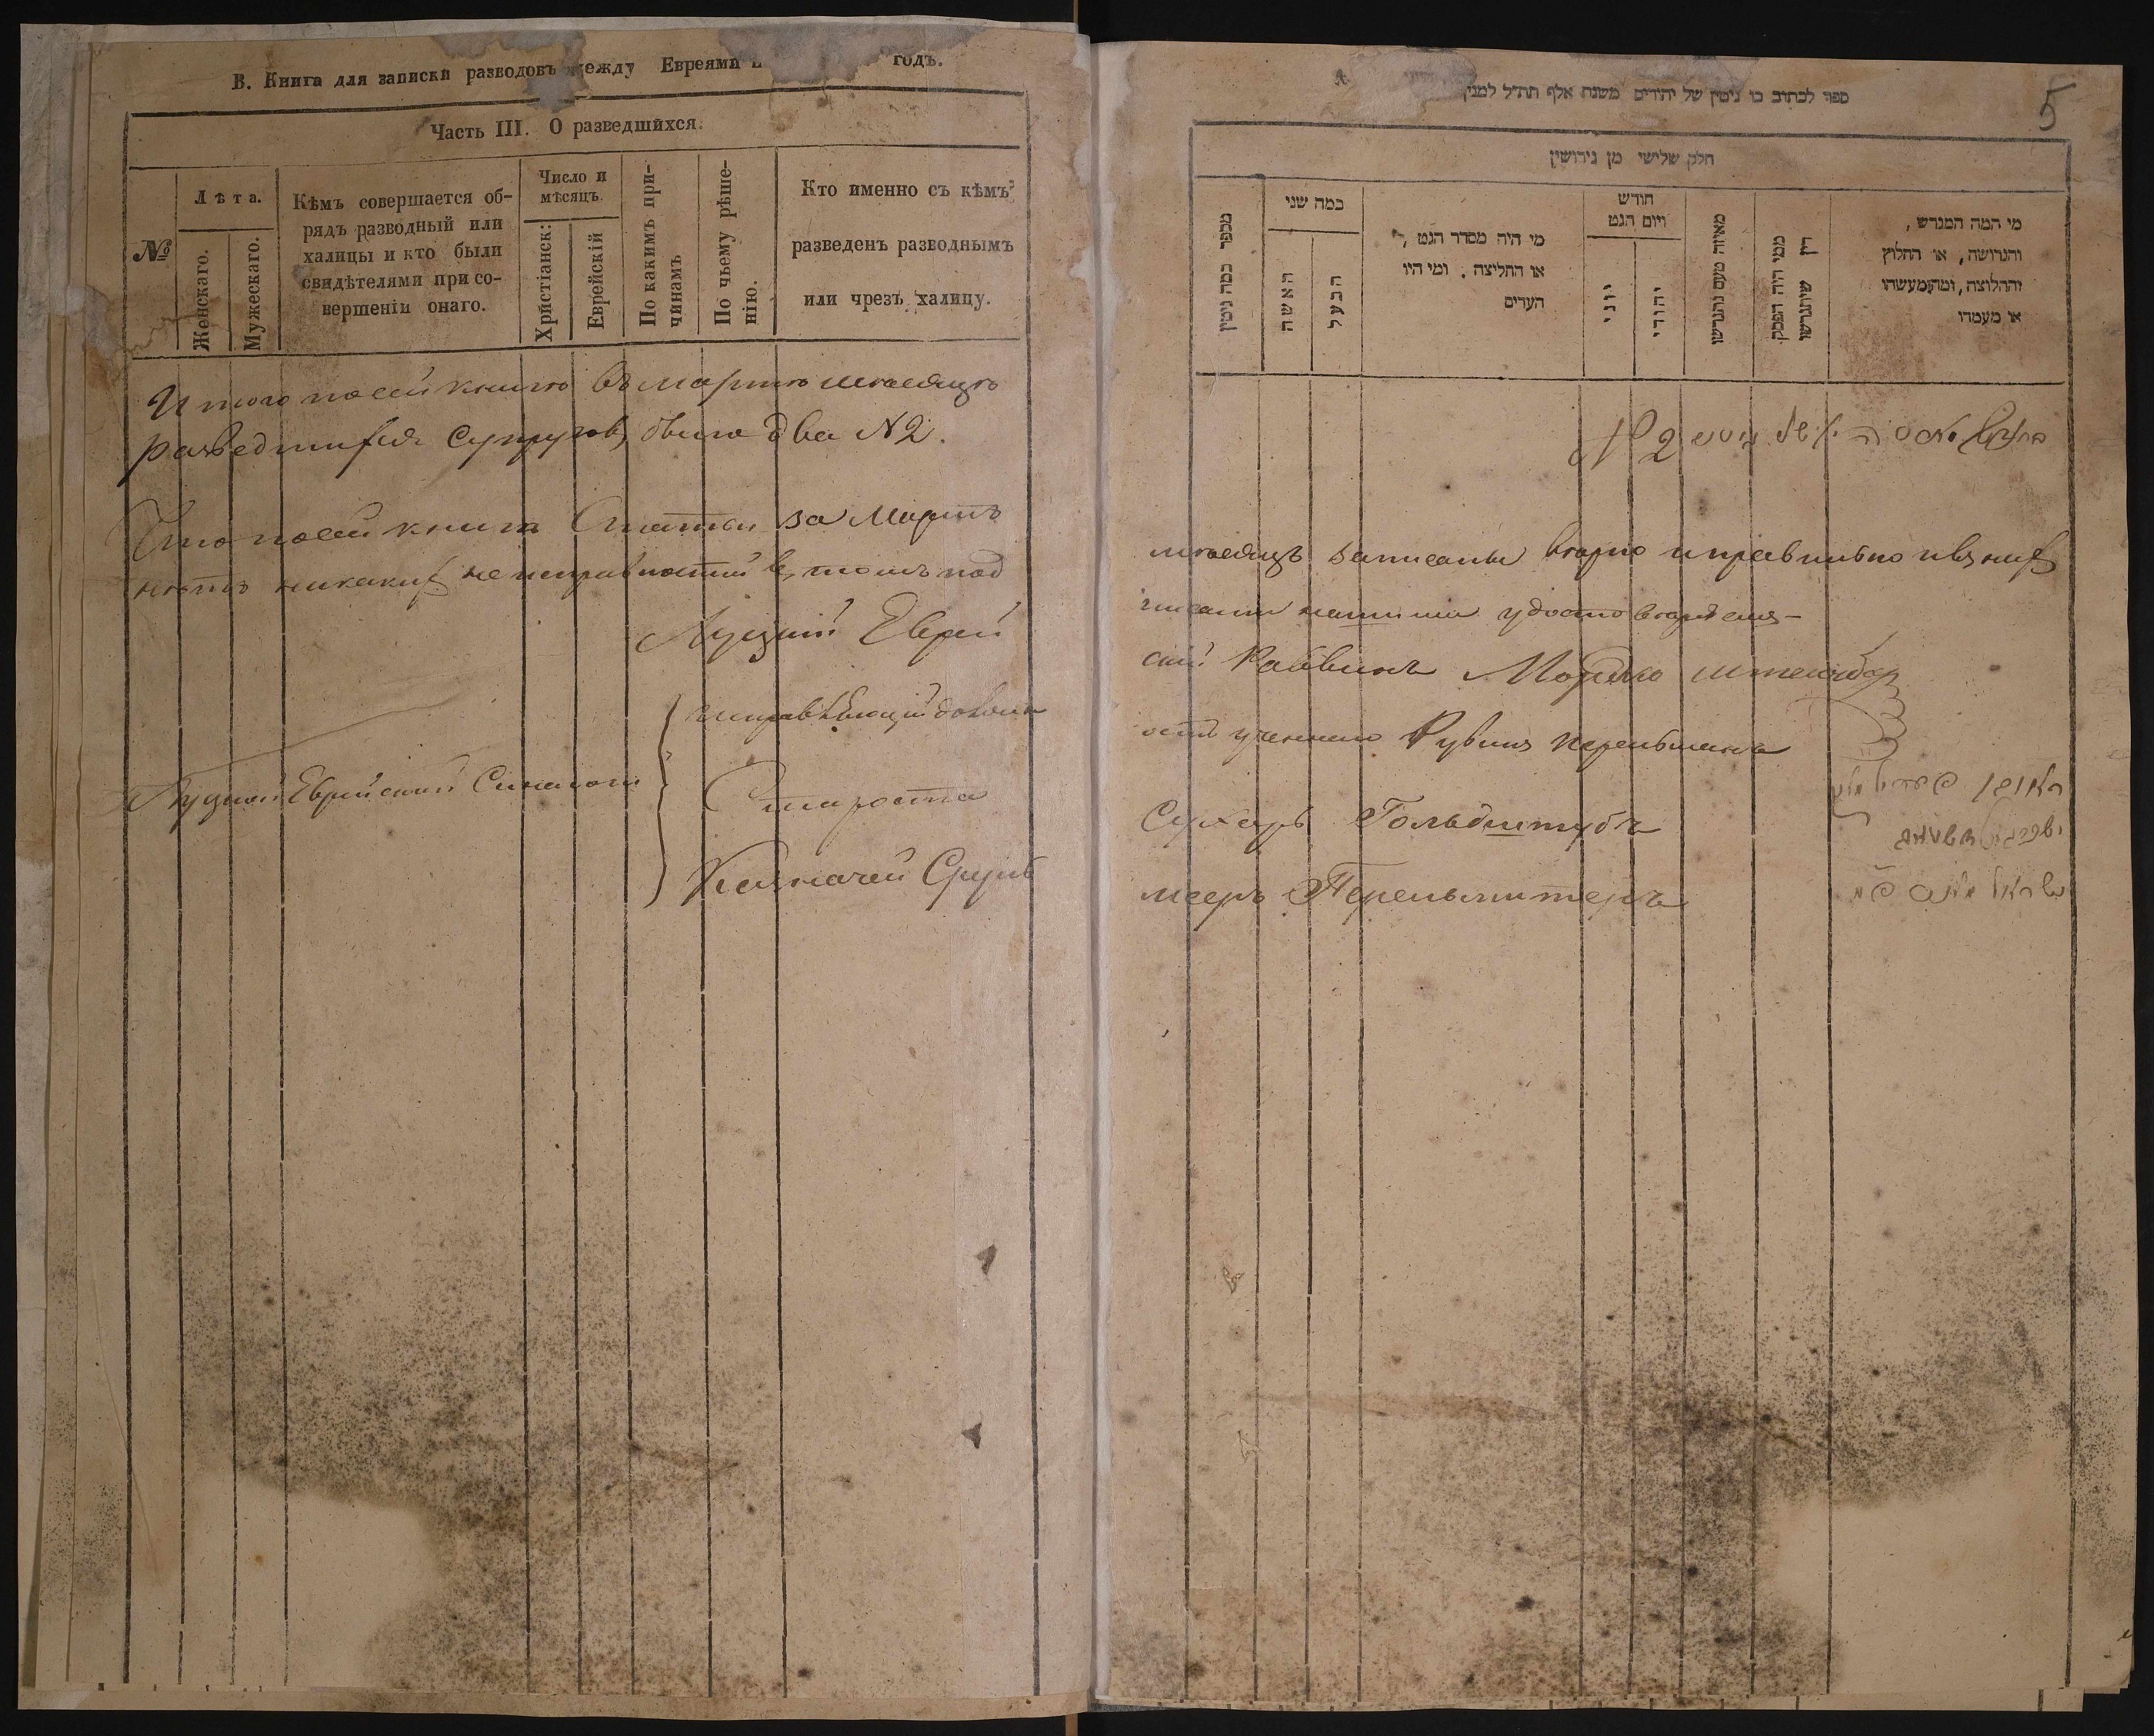 В. Книга для записки разводовъ между Евреями годъ.
Часть III. О разведшихся.
№
Лѣта.
Женскаго.
Мужескаго.
Кѣмъ совершается об-
рядъ разводный или
халицы и кто были
свидѣтелями при со-
вершеніи онаго.
Число и
мѣсяцъ.
Христіанск:
Еврейскій
По какимъ при-
чинамъ
По чьему рѣше-
нію.
Кто именно съ кѣмъ
разведенъ разводнымъ
или чрезъ халицу.
Итого по сей книгѣ въ мартѣ мѣсяцѣ
разведшихся супруговъ было два №2.
Что по сей книги статьи за Мартъ
нѣтъ никакихъ неисправностей въ томъ под
Луцкій Еврей
Луцкой Еврейской Синагоги
Староста
Казначей Сруль
ספר לכתוב בו גיטין של יהודים משנת אלף תת״ל למנין
5
חלק שלישי מן גירושין
מספר כמה גיטין
כמה שני
האשה
הבעל
מי היה מסדר הגט,
או החליצה. ומי היו
העדים
חודש
ויום הגט
יוני
יהודי
מאיזה טעם נתגרשו
מפי היה הפסק
דין שיתגרשו
מי המה המגרש,
והגרושה, או החלוץ
והחלוצה, ומה מעשהו
או מעמדו
№ 2
мѣсяцъ записаны вѣрно и правильно и въ нихъ
писали нашими удостовѣряемъ
скій Раввинъ Мордко Штейнбер
ость ученаго Рувинъ Перельманъ
Сухеръ Гольдштубъ
мееръ Перельмитеръ
ראובן
ישראל מאיר